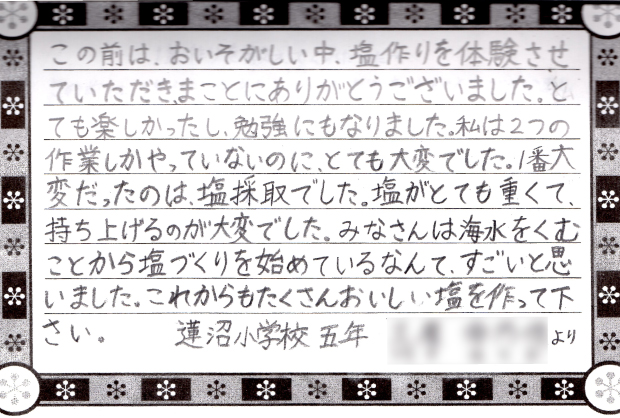 この前は、おいそがしい中、塩作りを体験させ
ていただきまことにありがとうございました。と
ても楽しかったし、勉強にもなりました。私は2つの
作業しかやっていないのに、とても大変でした。1番大
変だったのは、塩採取でした。塩がとても重くて、
持ち上げるのが大変でした。みなさんは海水をくむ
ことから塩づくりを始めているなんて、すごいと思
いました。これからもたくさんおいしい塩を作って下
さい。 蓮沼小学校 五年 より